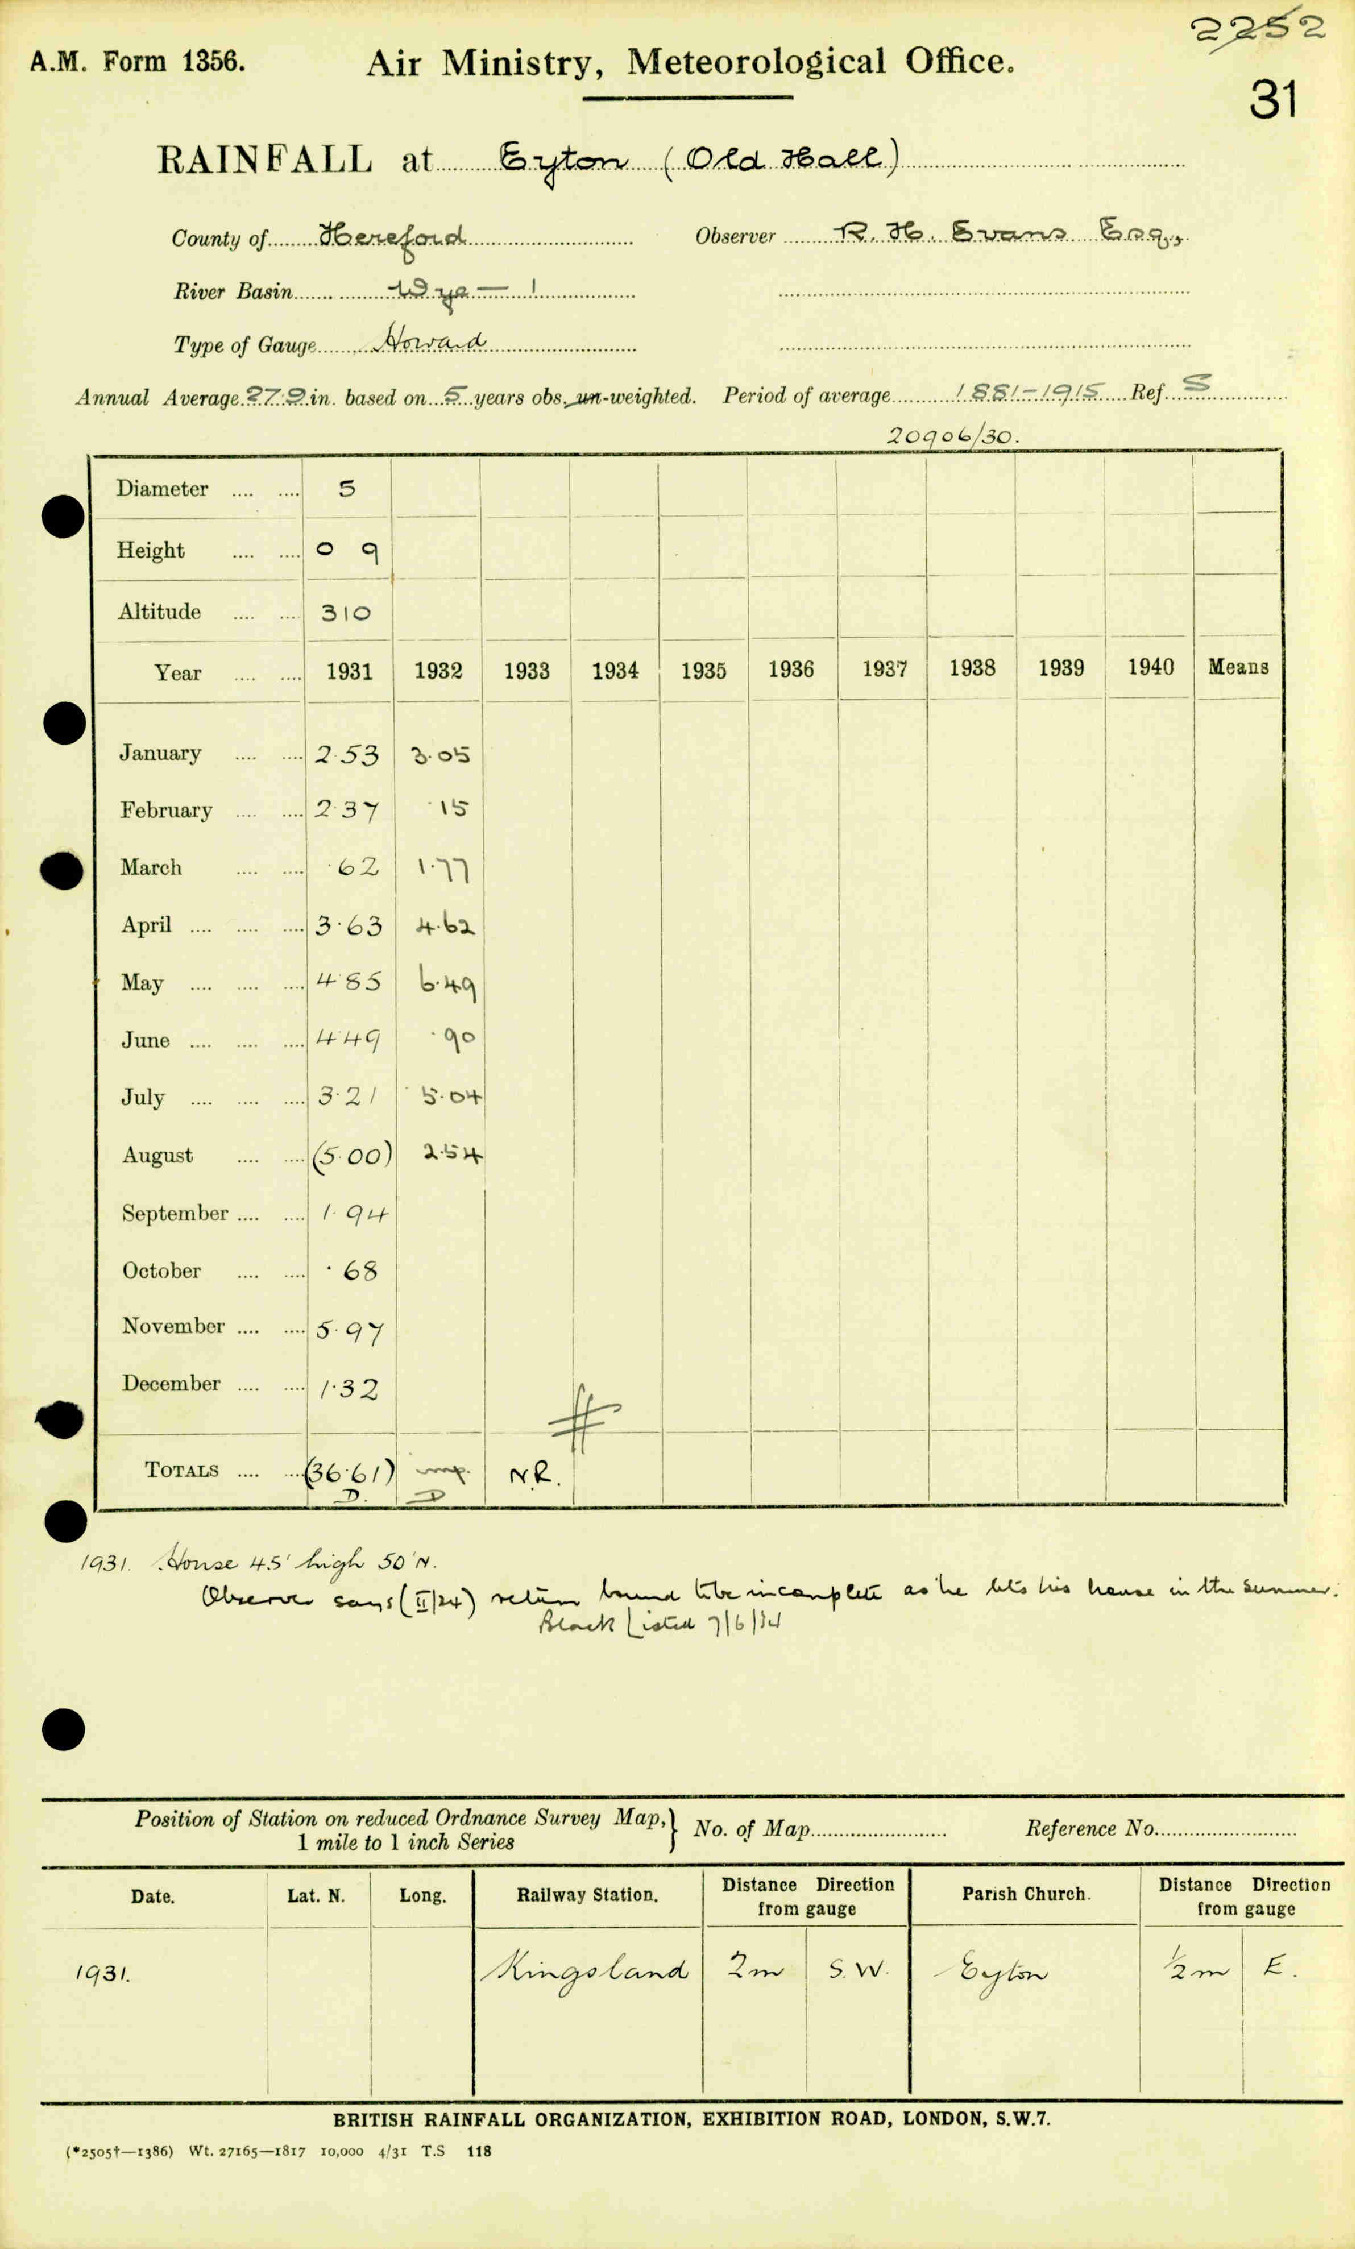 2252
A.M. Form 1356. Air Ministry, Meteorological Office.
31
RAINFALL at Eyton (Old Hall)
County of Hereford Observer R. H. Evans Esq.,
River Basin Wye — 1
Type of Gauge Howard
Annual Average 27.9 in. based on 5 years obs, un-weighted. Period of average 1881-1915 Ref. S
20906/30.
Diameter .... .... 5
Height .... .... 0 9
Altitude .... .... 310
Year .... .... 1931 1932 1933 1934 1935 1936 1937 1938 1939 1940 Means
January .... .... 2.53 3.05
February .... .... 2.37 .15
March .... .... .62 1.77
April .... .... .... 3.63 4.62
May .... .... .... 4.85 6.49
June .... .... .... 4.49 .90
July .... .... .... 3.21 5.04
August .... .... (5.00) 2.54
September .... .... 1.94
October .... .... .68
November .... .... 5.97
December .... .... 1.32
TOTALS .... .... (36.61) imp. N.R.
D. D
1931. House 45' high 50' N.
Observer says (II/34) return bound to be incomplete as he lets his house in the summer.
Black Listed 7/6/34
Position of Station on reduced Ordnance Survey Map, } No. of Map Reference No.
1 mile to 1 inch Series
Date. Lat. N. Long. Railway Station. Distance Direction from gauge Parish Church. Distance Direction from gauge
1931. Kingsland 2m S.W. Eyton ½m E.
BRITISH RAINFALL ORGANIZATION, EXHIBITION ROAD, LONDON, S.W.7.
(*2505†—1386) Wt. 27165—1817 10,000 4/31 T.S 118